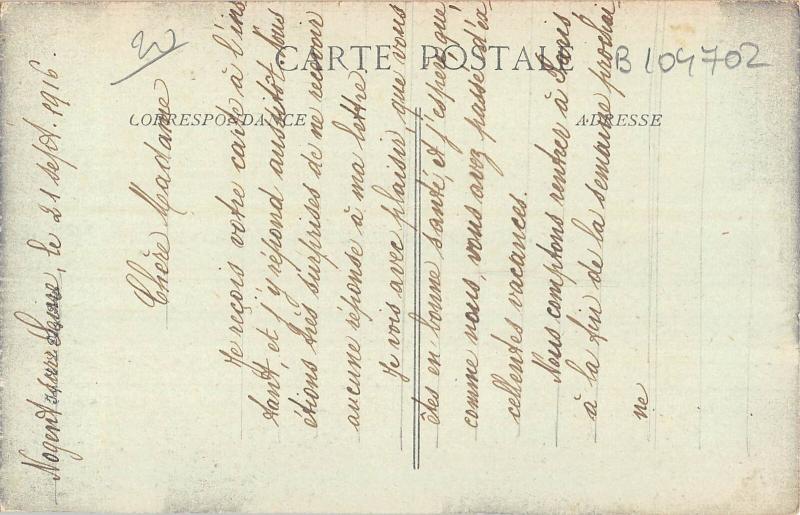 CARTE POSTALE
B 104702
CORRESPONDANCE
ADRESSE
Nogent, le 21 sept. 1916.
Chère Madame
Je reçois votre carte à l'ins
tant, et j'y répond aussitôt. Nous
étions très surprises de ne recevoir
aucune réponse à ma lettre.
Je vois avec plaisir que vous
êtes en bonne santé, et j'espère que
comme nous, vous avez passé d'ex-
cellentes vacances.
Nous comptons rentrer à Paris
à la fin de la semaine prochai-
ne